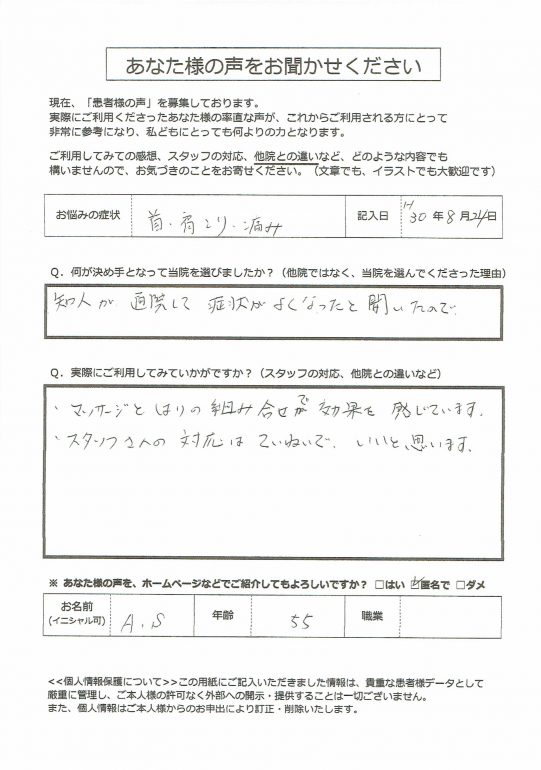 あなた様の声をお聞かせください
現在、「患者様の声」を募集しております。
実際にご利用くださったあなた様の率直な声が、これからご利用される方にとって
非常に参考になり、私どもにとっても何よりの力となります。
ご利用してみての感想、スタッフの対応、他院との違いなど、どのような内容でも
構いませんので、お気づきのことをお寄せください。（文章でも、イラストでも大歓迎です）
お悩みの症状 首・肩こり・痛み 記入日 H30年8月24日
Q．何が決め手となって当院を選びましたか？（他院ではなく、当院を選んでくださった理由）
知人が 通院して 症状がよくなったと聞いたので
Q．実際にご利用してみていかがですか？（スタッフの対応、他院との違いなど）
・マッサージとはりの組み合せで効果を感じています。
・スタッフさんの対応はていねいで、いいと思います。
※ あなた様の声を、ホームページなどでご紹介してもよろしいですか？ □はい ☑匿名で □ダメ
お名前（イニシャル可） A.S 年齢 55 職業
<<個人情報保護について>>この用紙にご記入いただきました情報は、貴重な患者様データとして
厳重に管理し、ご本人様の許可なく外部への開示・提供することは一切ございません。
また、個人情報はご本人様からのお申出により訂正・削除いたします。